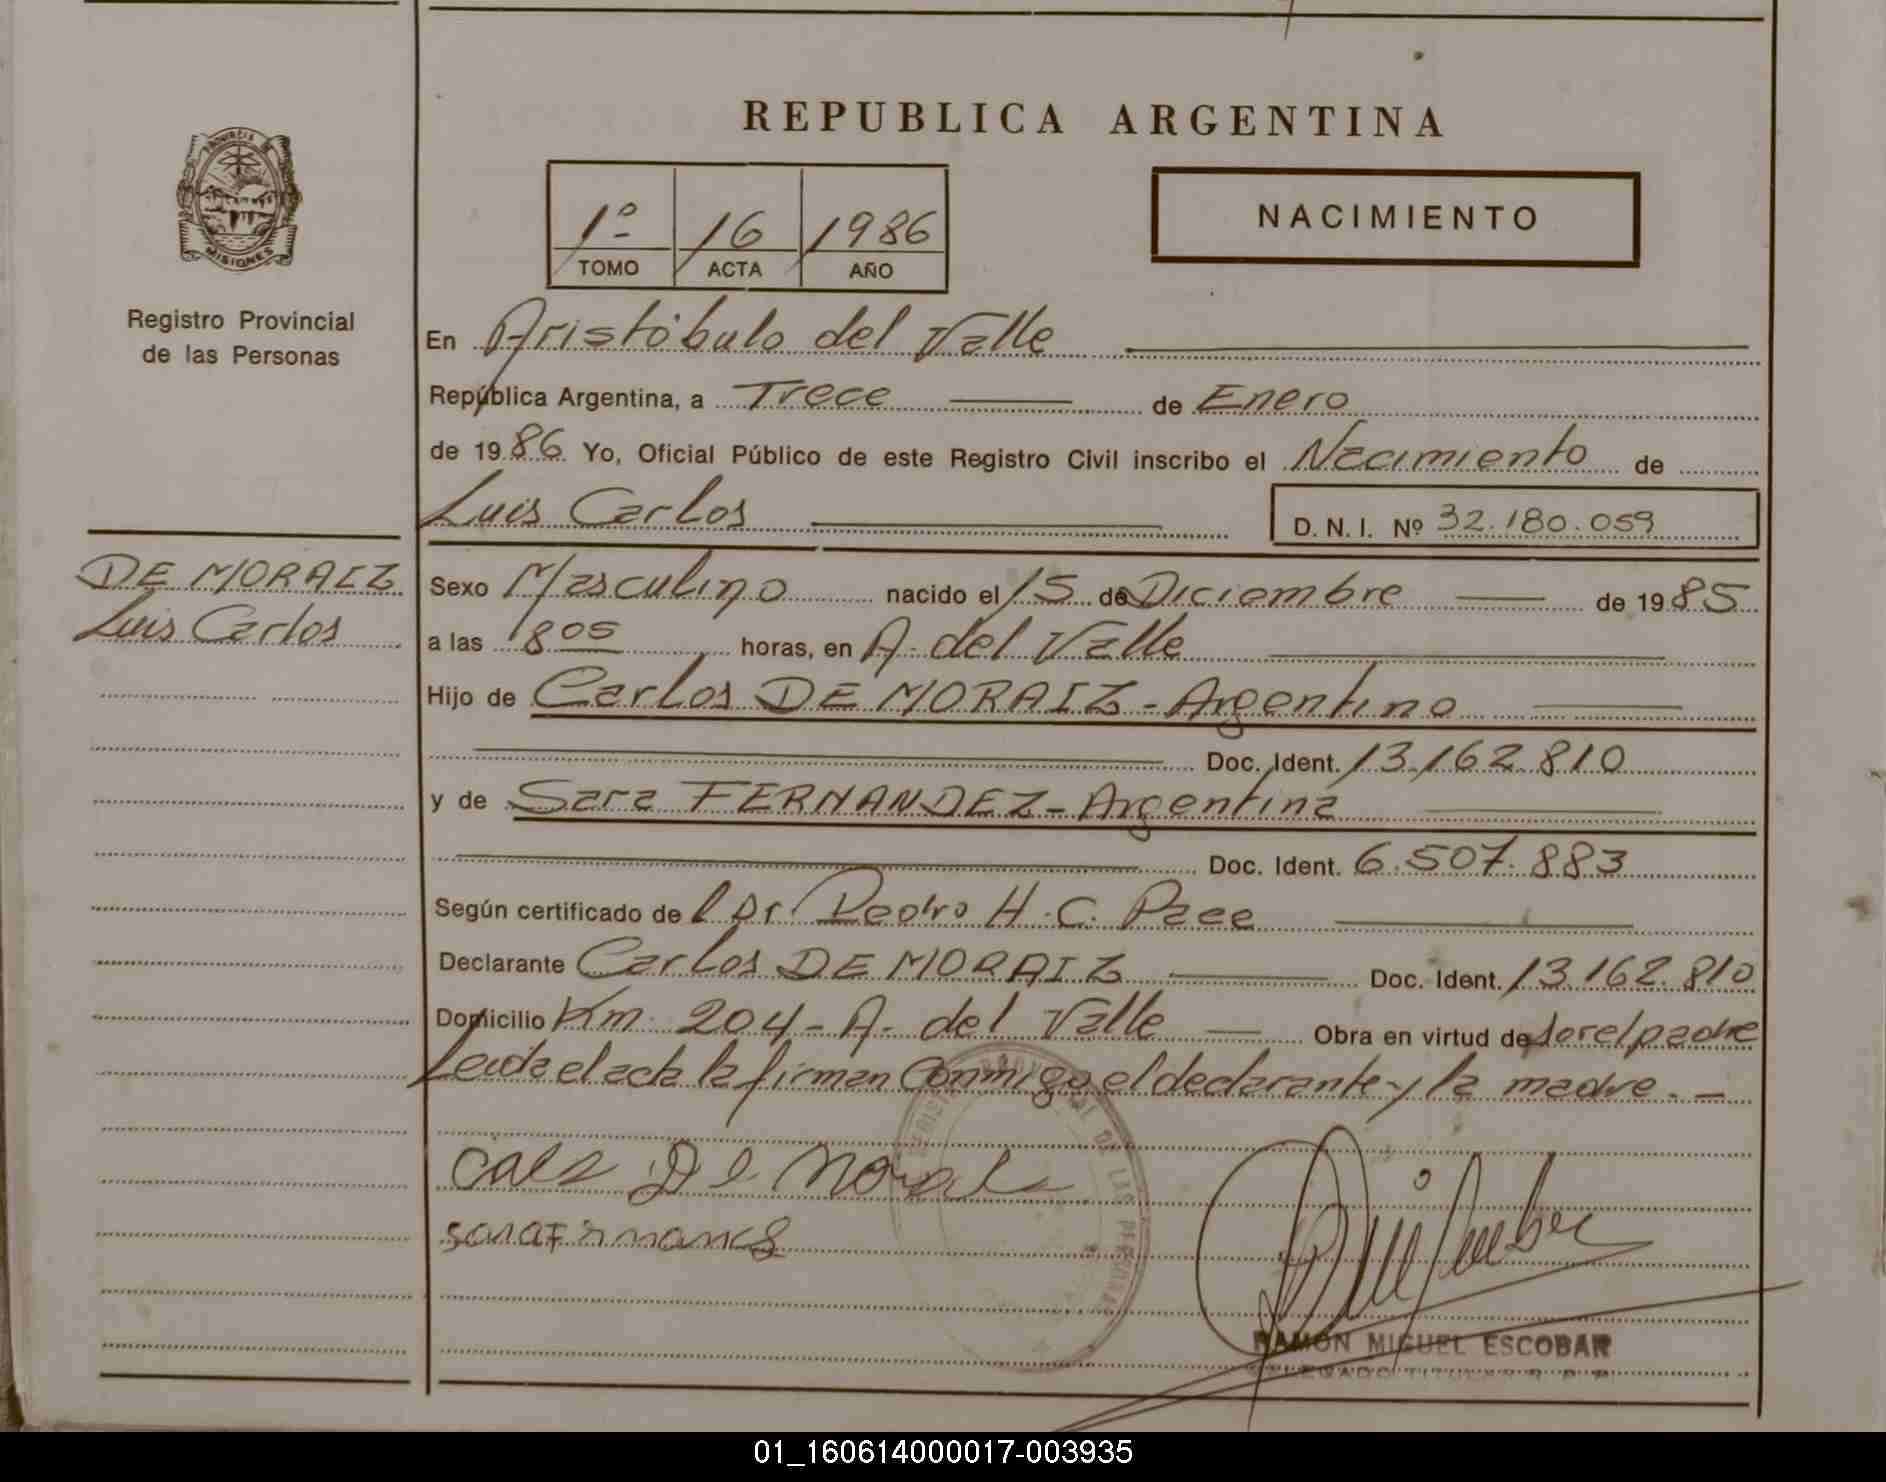 REPUBLICA ARGENTINA
PROVINCIA DE
MISIONES
Registro Provincial
de las Personas
1º 16 1986
TOMO ACTA AÑO
NACIMIENTO
En Aristóbulo del Valle
República Argentina, a Trece de Enero
de 1986 Yo, Oficial Público de este Registro Civil inscribo el Nacimiento de
Luis Carlos D. N. I. Nº 32.180.059
DE MORAIZ
Luis Carlos
Sexo Masculino nacido el 15 de Diciembre de 1985
a las 8 05 horas, en A. del Valle
Hijo de Carlos DE MORAIZ - Argentino
Doc. Ident. 13.162.810
y de Sara FERNANDEZ - Argentina
Doc. Ident. 6.507.883
Según certificado del Dr. Pedro H. C. Pace
Declarante Carlos DE MORAIZ Doc. Ident. 13.162.810
Domicilio Km. 204 - A. del Valle Obra en virtud de ser el padre
Leida el acta la firman conmigo el declarante y la madre. -
DE LAS PERSONAS
RAMON MIGUEL ESCOBAR
DELEGADO TITULAR R. P. P.
01_160614000017-003935